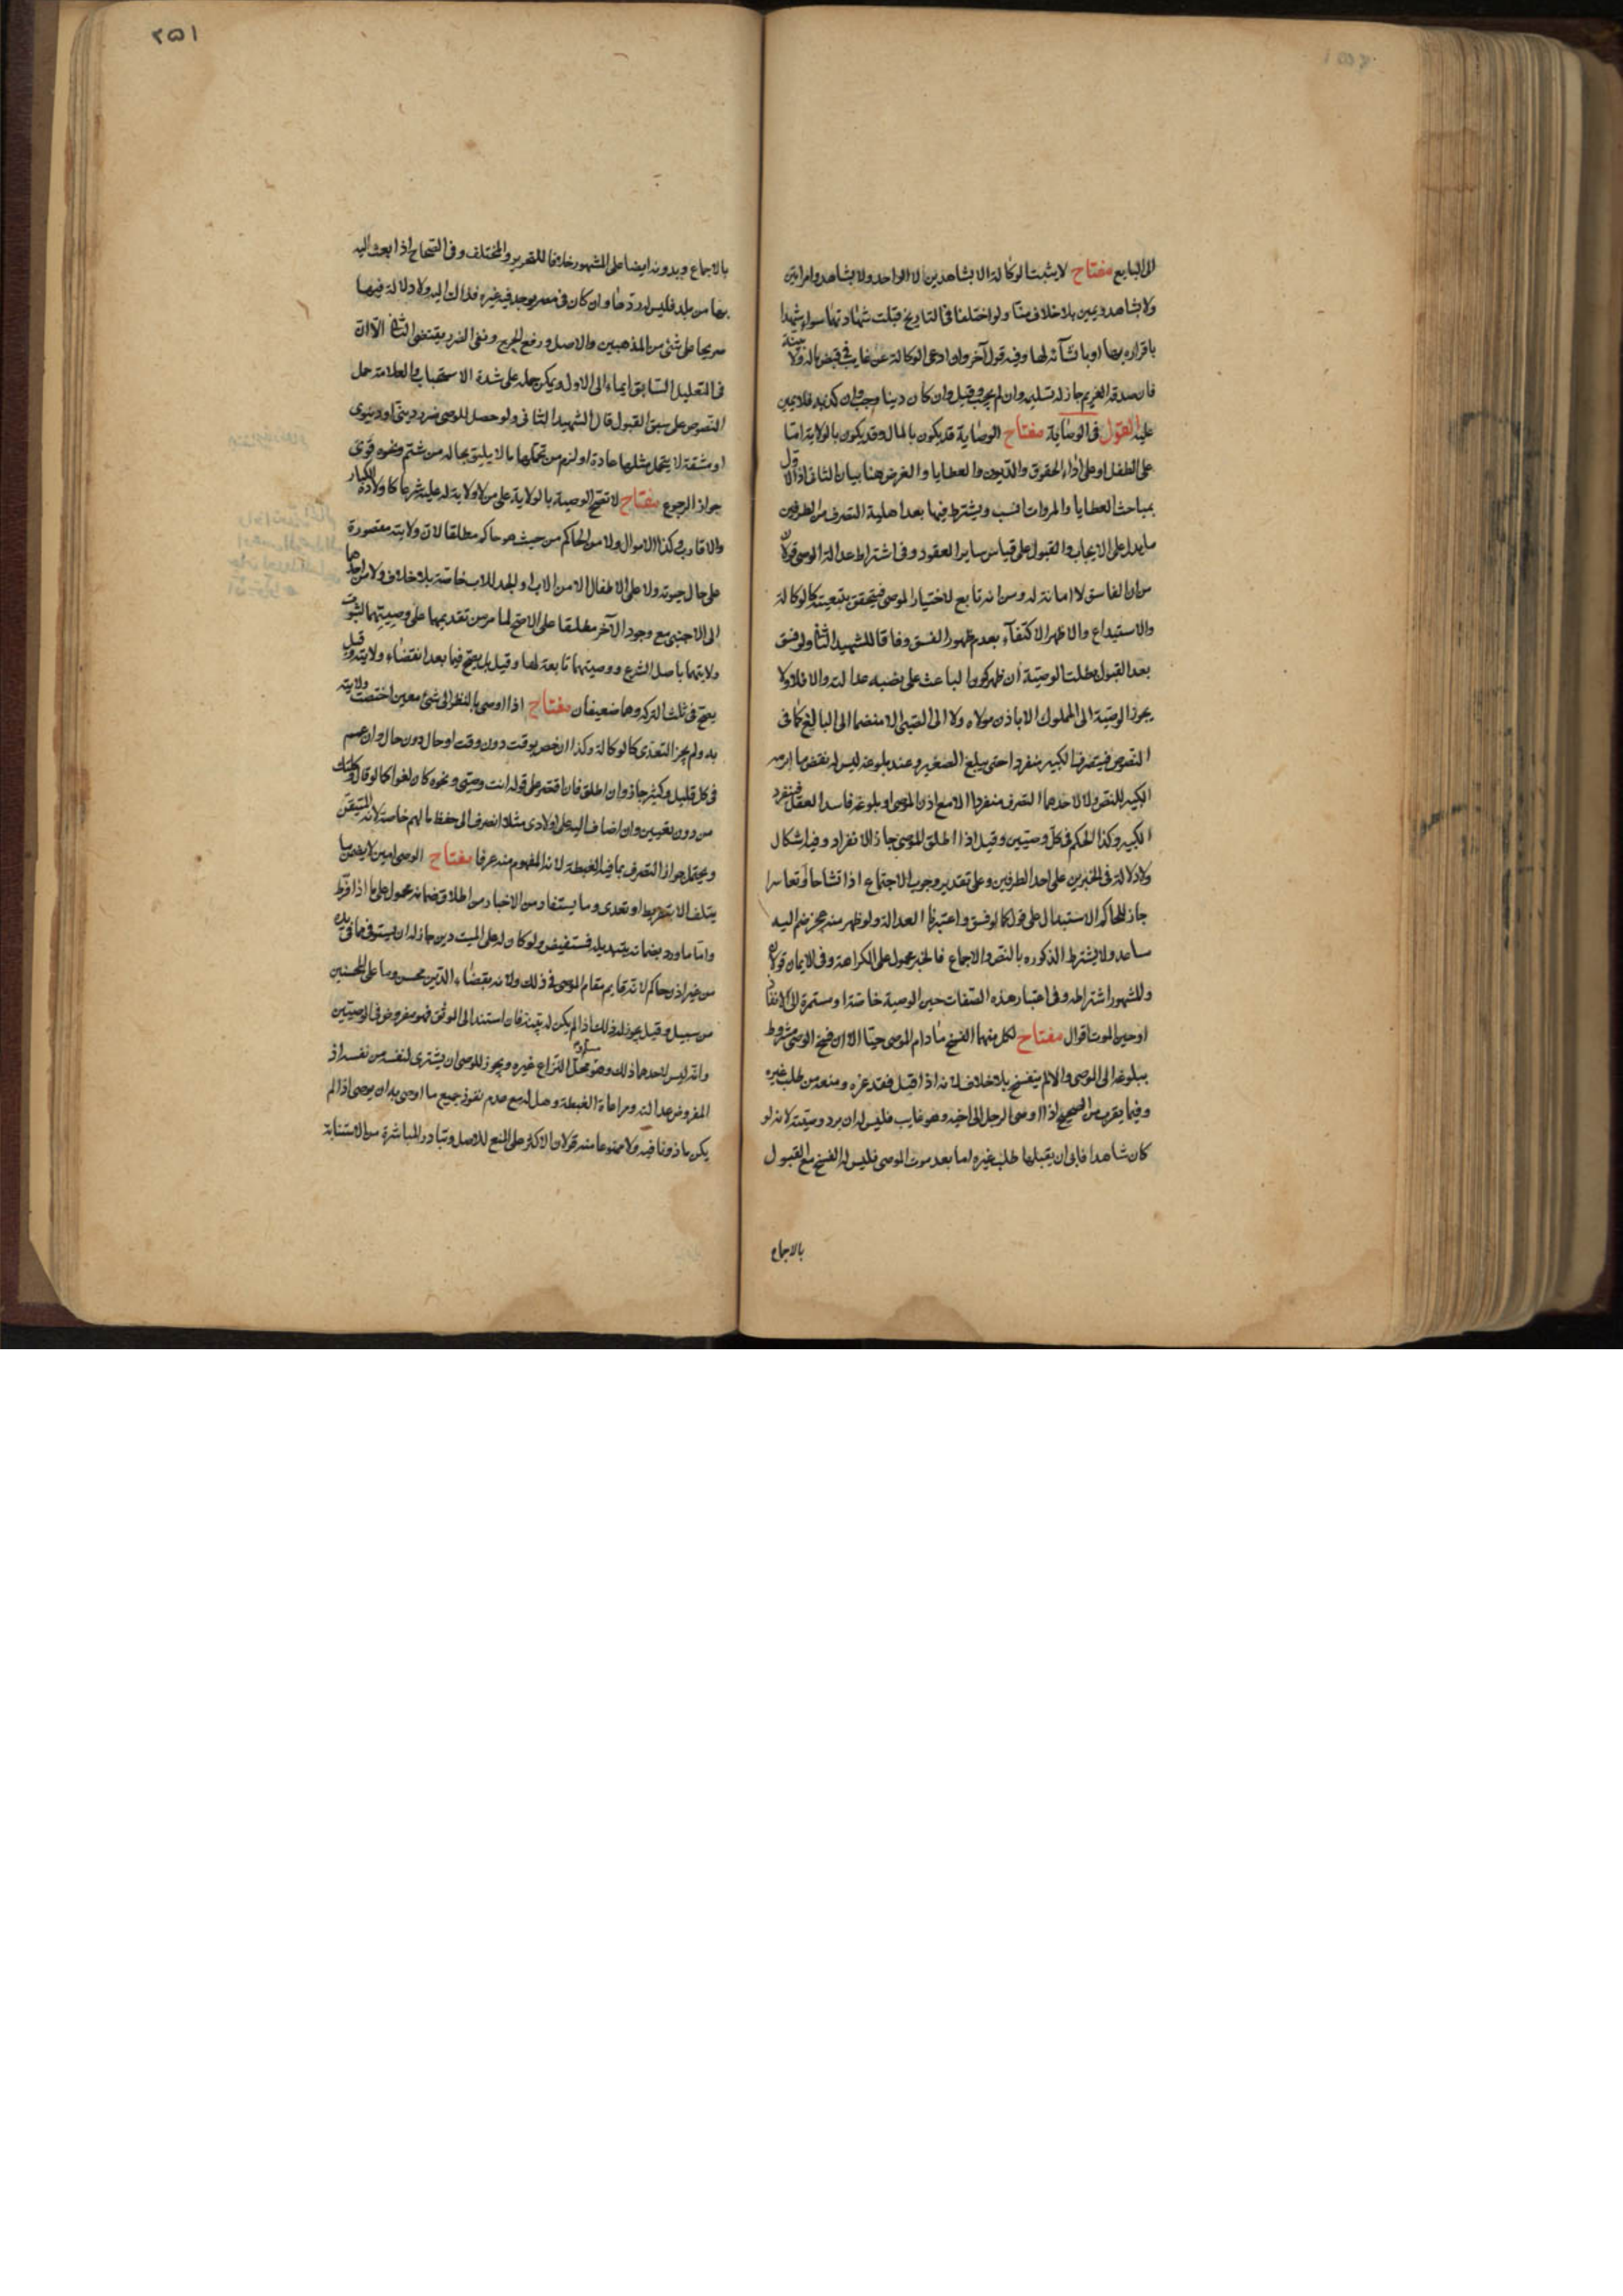 الى البايع مفتاح لا يثبت الوكالة الا بشاهدين لا الواحد ولا بشاهد وامراتين
ولا بشاهد ويمين بلا خلاف منا ولو اختلفا في التاريخ قبلت شهادتهما سواء شهدا
باقراره بها او بانشآئه لها وفيه قول آخر ولو ادعى الوكالة عن غايب في قبض ماله ولا بينة
فان صدقه الغريم جاز له تسليمه وان لم يجب وقيل وان كان دينا وجب وان كذبه فلا يمين
عليه القول في الوصاية مفتاح الوصاية قد يكون بالمال وقد يكون بالولاية اما
على الطفل او على اداء الحقوق والديون والعطايا والغرض هنا بيان الثاني اذ الاول
بمباحث العطايا والمروات انسب ويشترط فيها بعد اهلية التصرف من الطرفين
ما يدل على الايجاب والقبول على قياس ساير العقود وفي اشتراط عدالة الوصي قولان
من ان الفاسق لا امانة له ومن انه تابع لاختيار الموصي فيتحقق بتعيينه كالوكالة
والاستيداع والاظهر الاكتفآء بعدم ظهور الفسق وفاقا للشهيد الثاني ولو فسق
بعد القبول بطلت الوصية ان ظهر كون الباعث على نصبه عدالته والا فلا ولا
يجوز الوصية الى المملوك الا باذن مولاه ولا الى الصبي الا منضما الى البالغ كما في
النصوص فيتصرف الكبير منفردا حتى يبلغ الصغير وعند بلوغه ليس له نقض ما ابرمه
الكبير للنص ولا لاحدهما التصرف منفردا الا مع اذن الموصي او بلوغه فاسد العقل فينفرد
الكبير وكذا الحكم في كل وصيين وقيل اذا اطلق الموصي جاز الانفراد وفيه اشكال
ولا دلالة في الخبرين على احد الطرفين وعلى تقدير وجوب الاجتماع اذا تشاحا وتعاسرا
جاز للحاكم الاستبدال على قول كما لو فسق واعتبرنا العدالة ولو ظهر منه عجز ضم اليه
مساعد ولا يشترط الذكوره بالنص والاجماع فالخبر محمول على الكراهة وفي الايمان قولان
والمشهور اشتراطه وفي اعتبار هذه الصفات حين الوصية خاصة او مستمرة الى الانفاذ
او حين الموت اقوال مفتاح لكل منهما الفسخ ما دام الموصي حيا الا ان فسخ الوصي مشروط
ببلوغه الى الموصي والا لم ينفسخ بلا خلاف لانه اذا قبل فقد غره ومنعه من طلب غيره
وفيما يقرب من الصحيح اذا اوصى الرجل الى اخيه وهو غايب فليس له ان يرد وصيته لانه لو
كان شاهدا فابى ان يقبلها طلب غيره اما بعد موت الموصي فليس له الفسخ مع القبول
بالاجماع
٢۵١
بالاجماع وبدونه ايضا على المشهور خلافا للتحرير والمختلف وفي الصحاح اذا بعث اليه
بها من بلد فليس له ردها وان كان في مصر يوجد فيه غيره فذاك اليه ولا دلالة فيها
صريحا على شئ من المذهبين والاصل ورفع الحرج ونفى الضرر يقتضي الثاني الا ان
في التعليل السابق ايماء الى الاول ويمكن حمله على شدة الاستحباب والعلامة حمل
النصوص على سبق القبول قال الشهيد الثاني ولو حصل للوصي ضرر ديني او دنيوي
او مشقة لا يتحمل مثلها عادة او لزم من تحملها ما لا يليق بحاله من شتم ونحوه قوى
جواز الرجوع مفتاح لا تصح الوصية بالولاية على من لا ولاية له عليه شرعا كاولاده الكبار
والاقارب وكذا الاموال ولا من الحاكم من حيث هو حاكم مطلقا لان ولايته مقصورة
على حال حيوته ولا على الاطفال الا من الاب او الجد للاب خاصة بلا خلاف ولا من احدهما
الى الاجنبي مع وجود الآخر مطلقا على الاصح لما مر من تقديمهما على وصييهما لثبوت
ولايتهما باصل الشرع ووصيتهما تابعة لها وقيل بل يصح فيما بعد انقضاء ولايته وقيل
يصح في ثلث التركه وهما ضعيفان مفتاح اذا اوصى بالنظر الى شئ معين اختصت ولايته
به ولم يجز التعدى كالوكالة وكذا ان خص بوقت دون وقت او حال دون حال وان عمم
في كل قليل وكثير جاز وان اطلق فان اقتصر على قوله انت وصيى ونحوه كان لغوا كما لو قال وكلتك
من دون تعيين وان اضاف اليه على اولادى مثلا انصرف الى حفظ مالهم خاصة لانه المتيقن
ويحتمل جواز التصرف بما فيه الغبطة لانه المفهوم منه عرفا مفتاح الوصي امين لا يضمن ما
يتلف الا بتفريط او تعدى وما يستفاد من الاخبار من اطلاق ضمانه محمول على ما اذا فرط
واما ما ورد بضمانه بتبديله فمستفيض ولو كان له على الميت دين جاز له ان يستوفى مما في يده
من غير اذن حاكم لانه قايم مقام الموصي في ذلك ولانه بقضاء الدين محسن وما على المحسنين
من سبيل وقيل يجوز له ذلك اذا لم يكن له بينة فان استند الى الموثق فهو مفروض في الوصيين
وانه ليس لاحدهما ذلك وهو محل النزاع غيره ويجوز للوصي ان يشترى لنفسه من نفسه اذ
المفروض عدالته ومراعاة الغبطة وهل له مع عدم نفوذ جميع ما اوصى به ان يوصى اذا لم
يكن ماذونا فيه ولا ممنوعا منه قولان الاكثر على المنع للاصل وتبادر المباشرة من الاستنابة